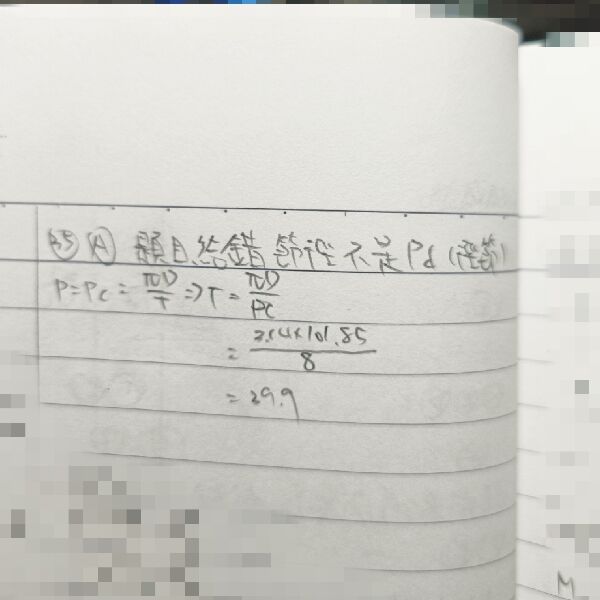 35 (A) 題目給錯 節徑不是Pd (徑節)
P=Pc = πD/T => T = πD/Pc
= 3.14×101.85/8
= 39.9
M